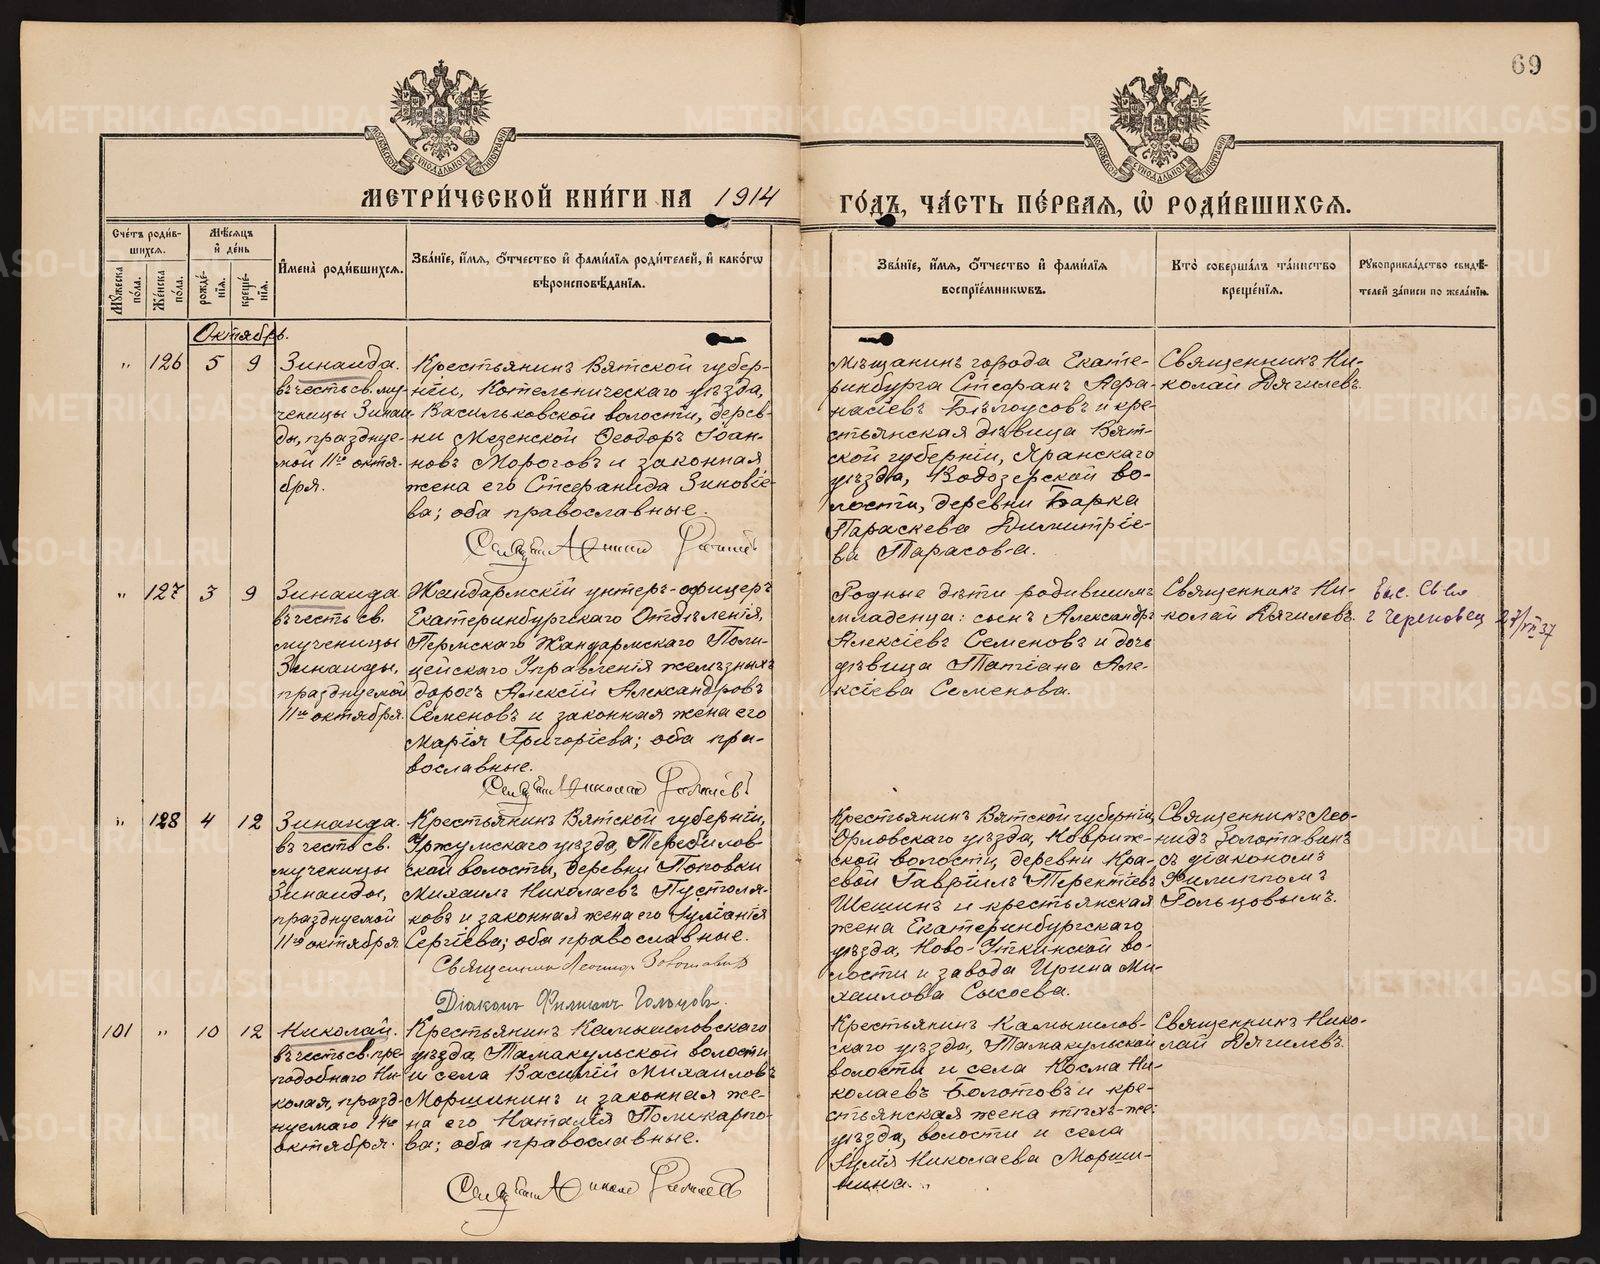 69
МЕТРИ́ЧЕСКОЙ КНИ́ГИ НА 1914
ГО́ДЪ, ЧА́СТЬ ПЕ́РВАЯ, Ѡ РОДИ́ВШИХСЯ.
Сче́тъ роди́в-
шихся.
Мѣ́сяцъ
и де́нь
Му́жеска
по́ла.
Же́нска
по́ла.
рожде́-
нія.
креще́-
нія.
Имена̀ роди́вшихся.
Зва́ніе, и́мя, о́тчество и фами́лія роди́телей, и како́гѡ
вѣроисповѣ́данія.
Зва́ніе, и́мя, о́тчество и фами́лія
воспріе́мникѡвъ.
Кто̀ соверша́лъ та́инство
креще́нія.
Рꙋкоприкла́дство свидѣ́-
телей за́писи по жела́нію.
Октябрь.
" 126 5 9
Зинаида.
въ честь св. му-
ченицы Зинаи-
ды, празднуе-
мой 11го октя-
бря.
Крестьянинъ Вятской губер-
ніи, Котельническаго уѣзда,
Васильковской волости, дерев-
ни Мезенской Ѳеодоръ Іоан-
новъ Морозовъ и законная
жена его Стефанида Зиновіе-
ва; оба православные.
Мѣщанинъ города Екате-
ринбурга Стефанъ Афа-
насіевъ Бѣлоусовъ и кре-
стьянская дѣвица Вят-
ской губерніи, Яранскаго
уѣзда, Водозерской во-
лости, деревни Барка
Параскева Димитріе-
ва Тарасов-а.
Священникъ Ни-
колай Дягилевъ.
" 127 3 9
Зинаида
въ честь св.
мученицы
Зинаиды,
празднуемой
11го октября.
Жандармскій унтеръ-офицеръ
Екатеринбургскаго Отдѣленія,
Пермскаго Жандармскаго Поли-
цейскаго Управленія желѣзныхъ
дорогъ Алексій Александровъ
Семеновъ и законная жена его
Марія Григоріева; оба пра-
вославные.
Родные дѣти родившимъ
младенца: сынъ Александръ
Алексіевъ Семеновъ и дочь
дѣвица Татіана Але-
ксіева Семенова.
Священникъ Ни-
колай Дягилевъ.
г Череповец 27/VII 37
" 128 4 12
Зинаида.
въ честь св.
мученицы
Зинаиды,
празднуемой
11го октября
Крестьянинъ Вятской губерніи,
Уржумскаго уѣзда, Теребилов-
ской волости, деревни Поповки
Михаилъ Николаевъ Пустоля-
ковъ и законная жена его Іуліанія
Сергіева; оба православные.
Священникъ Леонидъ Золотавинъ
Діаконъ Филиппъ Гольцовъ.
Крестьянинъ Вятской губерніи,
Орловскаго уѣзда, Коврижс-
ской волости, деревни Кра-
евой Гавріилъ Терентіевъ
Шешинъ и крестьянская
жена Екатеринбургскаго
уѣзда, Ново-Уткинской во-
лости и завода Ирина Ми-
хаилова Сысоева.
Священникъ Лео-
нидъ Золотавинъ
съ діакономъ
Филиппомъ
Гольцовымъ.
101 " 10 12
Николай.
въ честь св. пре-
подобнаго Ни-
колая, празд-
нуемаго 14го
октября.
Крестьянинъ Камышловскаго
уѣзда, Тамакульской волости
и села Василій Михаиловъ
Моршининъ и законная же-
на его Наталія Поликарпо-
ва; оба православные.
Крестьянинъ Камышлов-
скаго уѣзда, Тамакульской
волости и села Косма Ни-
колаевъ Болотовъ и кре-
стьянская жена тѣхъ-же:
уѣзда, волости и села
Іулія Николаева Морши-
нина.
Священникъ Нико-
лай Дягилевъ.
METRIKI.GASO-URAL.RU